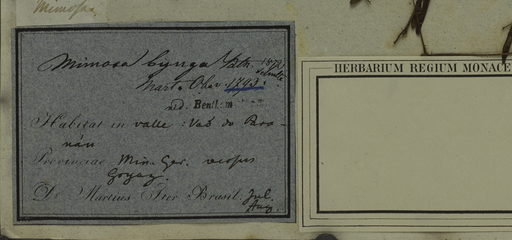 Mimosa
Mimosa bynga Bth. 1872
Mart. Obs. 1793.
vid. Benth. in
Habitat in valle: Vaõ do Para-
nán
Provinciae Min. Ger. versus
Goyaz.
D. Martius Iter Brasil. Jul.
Aug.
HERBARIUM REGIUM MONACE